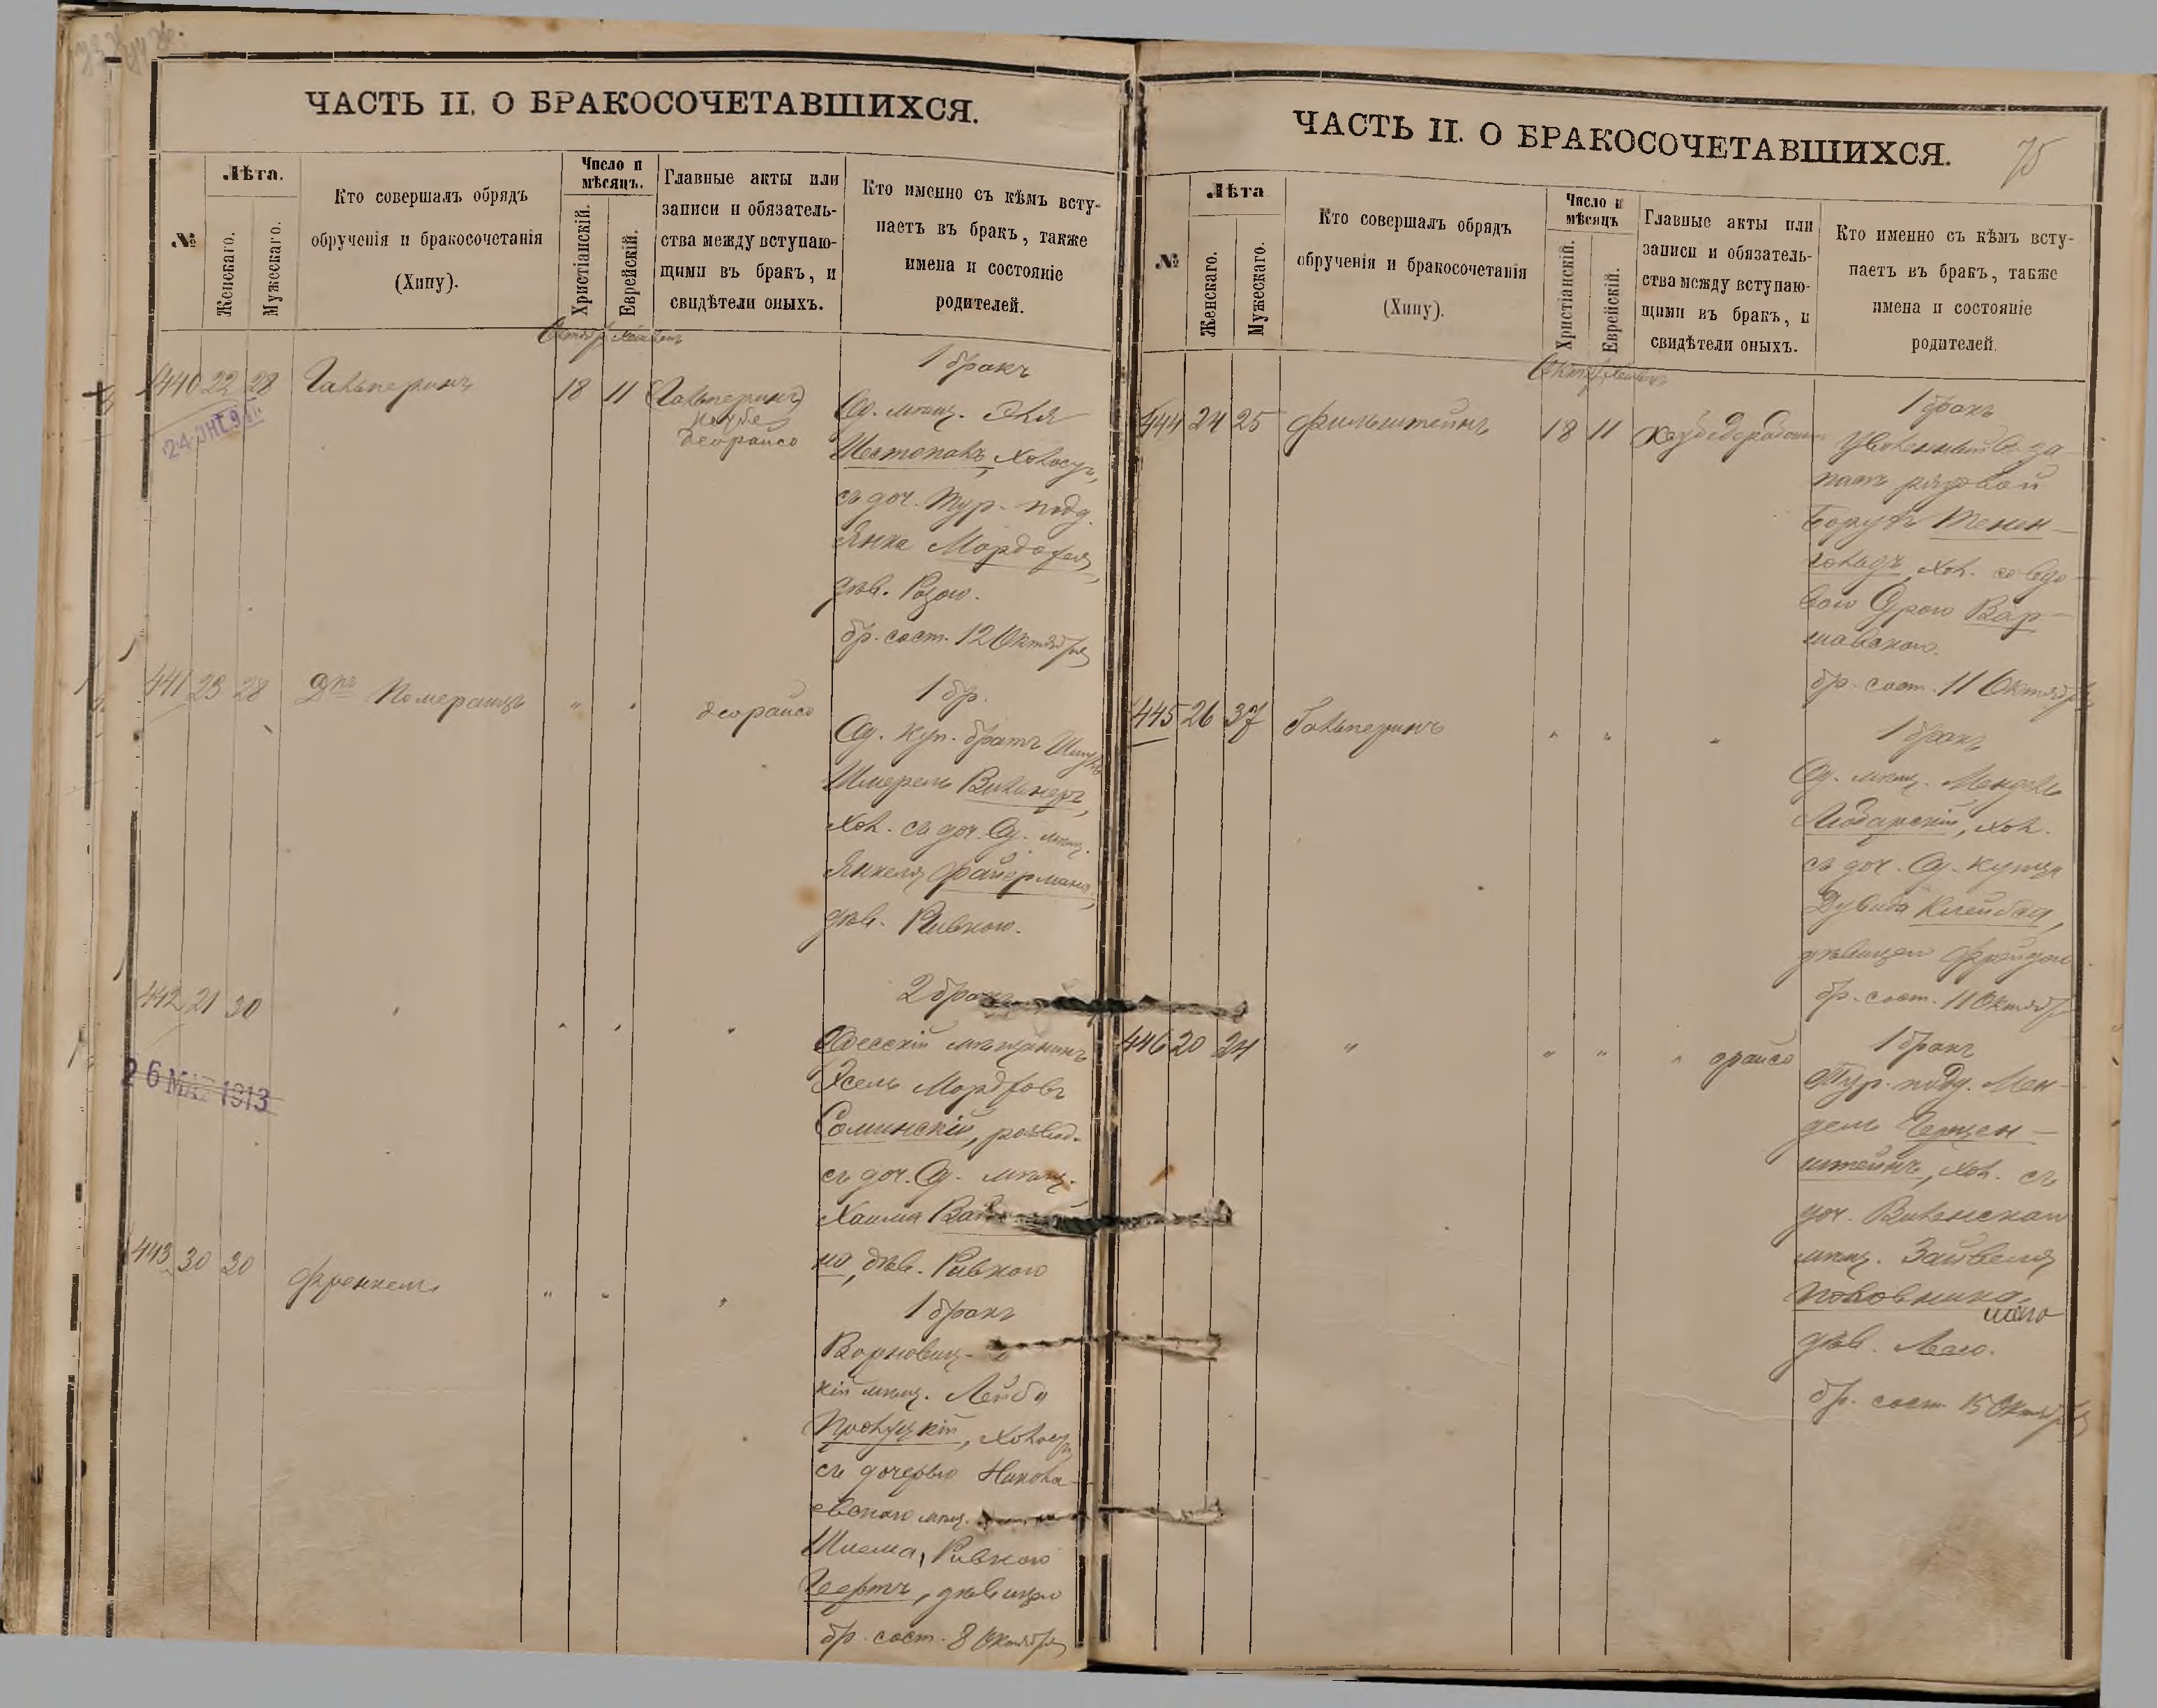 ЧАСТЬ II. О БРАКОСОЧЕТАВШИХСЯ.
№
Лѣта.
Женскаго.
Мужескаго.
Кто совершалъ обрядъ
обрученія и бракосочетанія
(Хипу).
Число и
мѣсяцъ.
Христіанскій.
Еврейскій.
Главные акты или
записи и обязатель-
ства между вступаю-
щими въ бракъ, и
свидѣтели оныхъ.
Кто именно съ кѣмъ всту-
паетъ въ бракъ, также
имена и состояніе
родителей.
440 22 28 Гальперинъ 18 11 Гальперинъ
деорайсо
1 бракъ
Од. мѣщ.
Шестопалъ, холост,
съ доч. тур. подд.
Янка Мордохея,
дѣв. Розою.
бр. сост. 12 Октября
441 23 28 Померанцъ " " деорайсо
1 бр.
Од. куп. братъ
Шмерель Вильнеръ,
хол. съ доч. Од. мѣщ.
Янкеля Файермана,
дѣв. Ривкою.
442 21 30 " " " "
2 бракъ
Одесскій мѣщанинъ
Іосель Мордховъ
Соминскій, развед.
съ доч. Од. мѣщ.
Хаима
на, дѣв. Ривкою
26 МАЯ 1913
443 30 30 Френкель " " "
1 бракъ
кій мѣщ. Лейба
холост,
съ дочерью Никола-
евского мѣщ.
Шлема, Ривкою
Герть, дѣвицею
бр. сост. 8 Октября
ЧАСТЬ II. О БРАКОСОЧЕТАВШИХСЯ.
75
№
Лѣта
Женскаго.
Мужескаго.
Кто совершалъ обрядъ
обрученія и бракосочетанія
(Хипу).
Число и
мѣсяцъ
Христіанскій.
Еврейскій.
Главные акты или
записи и обязатель-
ства между вступаю-
щими въ бракъ, и
свидѣтели оныхъ.
Кто именно съ кѣмъ всту-
паетъ въ бракъ, также
имена и состояніе
родителей.
444 24 25 Фильштейнъ 18 11
1 бракъ
Уволенный въ за-
пасъ рядовой
Борухъ Тенен-
гольцъ, хол. со вдо-
вою Сурою Вар-
шавскою.
бр. сост. 11 Октября
445 26 37 Гальперинъ " " "
1 бракъ
Од. мѣщ. Мендель
хол.
съ доч. Од. купца
Дувида
дѣвицею Фрейдою
бр. сост. 11 Октября
446 20 24 " " " "
1 бракъ
Тур. подд. Мен-
дель Герцен-
штейнъ, хол. съ
доч. Виленскаго
мѣщ. Зайвеля
дѣв. Леею.
бр. сост. 15 Октября